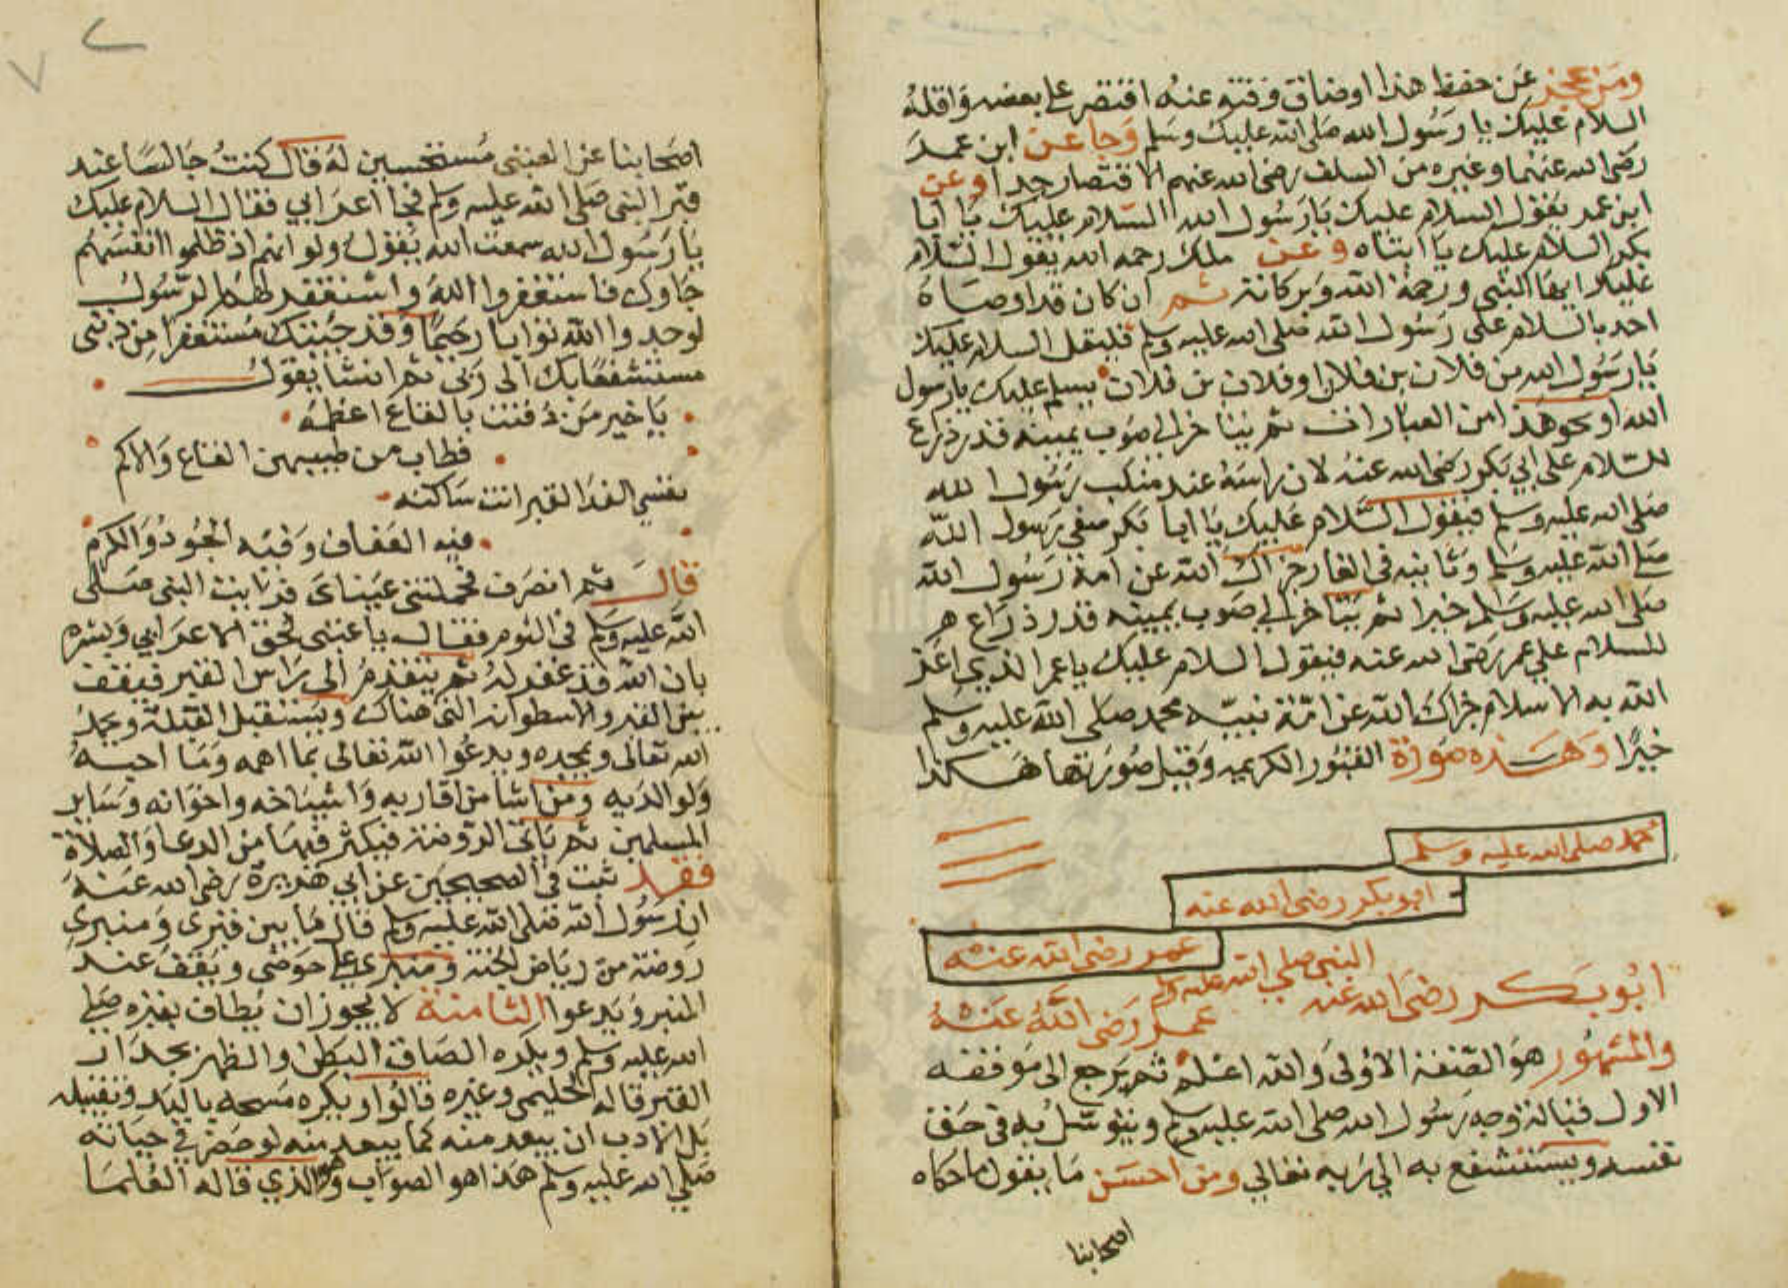 ومن عجز عن حفظ هذا او ضاق وقته عنه اقتصر على بعضه واقله
السلام عليك يا رسول الله صلى الله عليك وسلم وجا عن ابن عمر
رضى الله عنهما وغيره من السلف رضى الله عنهم الاقتصار جدا وعن
ابن عمر يقول السلام عليك يا رسول الله السلام عليك يا ابا
بكر السلام عليك يا ابتاه وعن ملك رحمه الله يقول السلام
عليك ايها النبى ورحمة الله وبركاته ثم ان كان قد اوصاه
احد بالسلام على رسول الله صلى الله عليه وسلم فليقل السلام عليك
يا رسول الله من فلان بن فلان او فلان بن فلان يسلم عليك يا رسول
الله او نحو هذا من العبارات ثم يتاخر الى صوب يمينه قدر ذراع
للسلام على ابي بكر رضى الله عنه لان راسه عند منكب رسول الله
صلى الله عليه وسلم فيقول السلام عليك يا ابا بكر صفي رسول الله
صلى الله عليه وسلم وثانيه في الغار جزاك الله عن امة رسول الله
صلى الله عليه وسلم خيرا ثم يتاخر الى صوب يمينه قدر ذراع
للسلام على عمر رضى الله عنه فيقول السلام عليك يا عمر الذي اعز
الله به الاسلام جزاك الله عن امة نبيه محمد صلى الله عليه وسلم
خيرا وهذه صورة القبور الكريمه وقيل صورتها هكذا
محمد صلى الله عليه وسلم
ابو بكر رضى الله عنه
عمر رضى الله عنه
النبى صلى الله عليه وسلم
ابوبكر رضى الله عنه
عمر رضى الله عنه
والمشهور هو الصفة الاولى والله اعلم ثم يرجع الى موقفه
الاول قبالة وجه رسول الله صلى الله عليه وسلم ويتوسل به فى حق
نفسه ويستشفع به الى ربه تعالي ومن احسن ما يقول ما حكاه
اصحابنا
اصحابنا عن العتبى مستحسنين له قال كنت جالسا عند
قبر النبى صلى الله عليه وسلم فجا اعرابي فقال السلام عليك
يا رسول الله سمعت الله يقول ولو انهم اذ ظلموا انفسهم
جاوك فاستغفروا الله واستغفر لهم الرسول
لوجدوا الله توابا رحيما وقد جيتك مستغفرا من ذنبى
مستشفعا بك الى ربى ثم انشا يقول
يا خير من دفنت بالقاع اعظمه
فطاب من طيبهن القاع والاكم
نفسي الفدا لقبر انت ساكنه
فيه العفاف وفيه الجود والكرم
قال ثم انصرف فحملتنى عيناى فرايت النبى صلى
الله عليه وسلم فى النوم فقال يا عتبى الحق الاعرابي وبشره
بان الله قد غفر له ثم يتقدم الى راس القبر فيقف
بين القبر والاسطوانه التى هناك ويستقبل القبلة ويحمد
الله تعالى ويمجده ويدعوا الله تعالى بما اهمه وما احبه
ولوالديه ومن شا من اقاربه واشياخه واخوانه وساير
المسلمين ثم ياتى الروضة فيكثر فيها من الدعا والصلاة
فقد ثبت في الصحيحين عن ابي هريرة رضى الله عنه
ان رسول الله صلى الله عليه وسلم قال ما بين قبرى ومنبري
روضة من رياض الجنة ومنبرى على حوضى ويقف عند
المنبر ويدعوا الثامنة لا يجوز ان يطاف بقبره صلى
الله عليه وسلم ويكره الصاق البطن والظهر بجدار
القبر قاله الحليمى وغيره قالوا ويكره مسحه باليد وتقبيله
بل الادب ان يبعد منه كما يبعد منه لو حضر في حياته
صلى الله عليه وسلم هذا هو الصواب وهو الذي قاله العلما